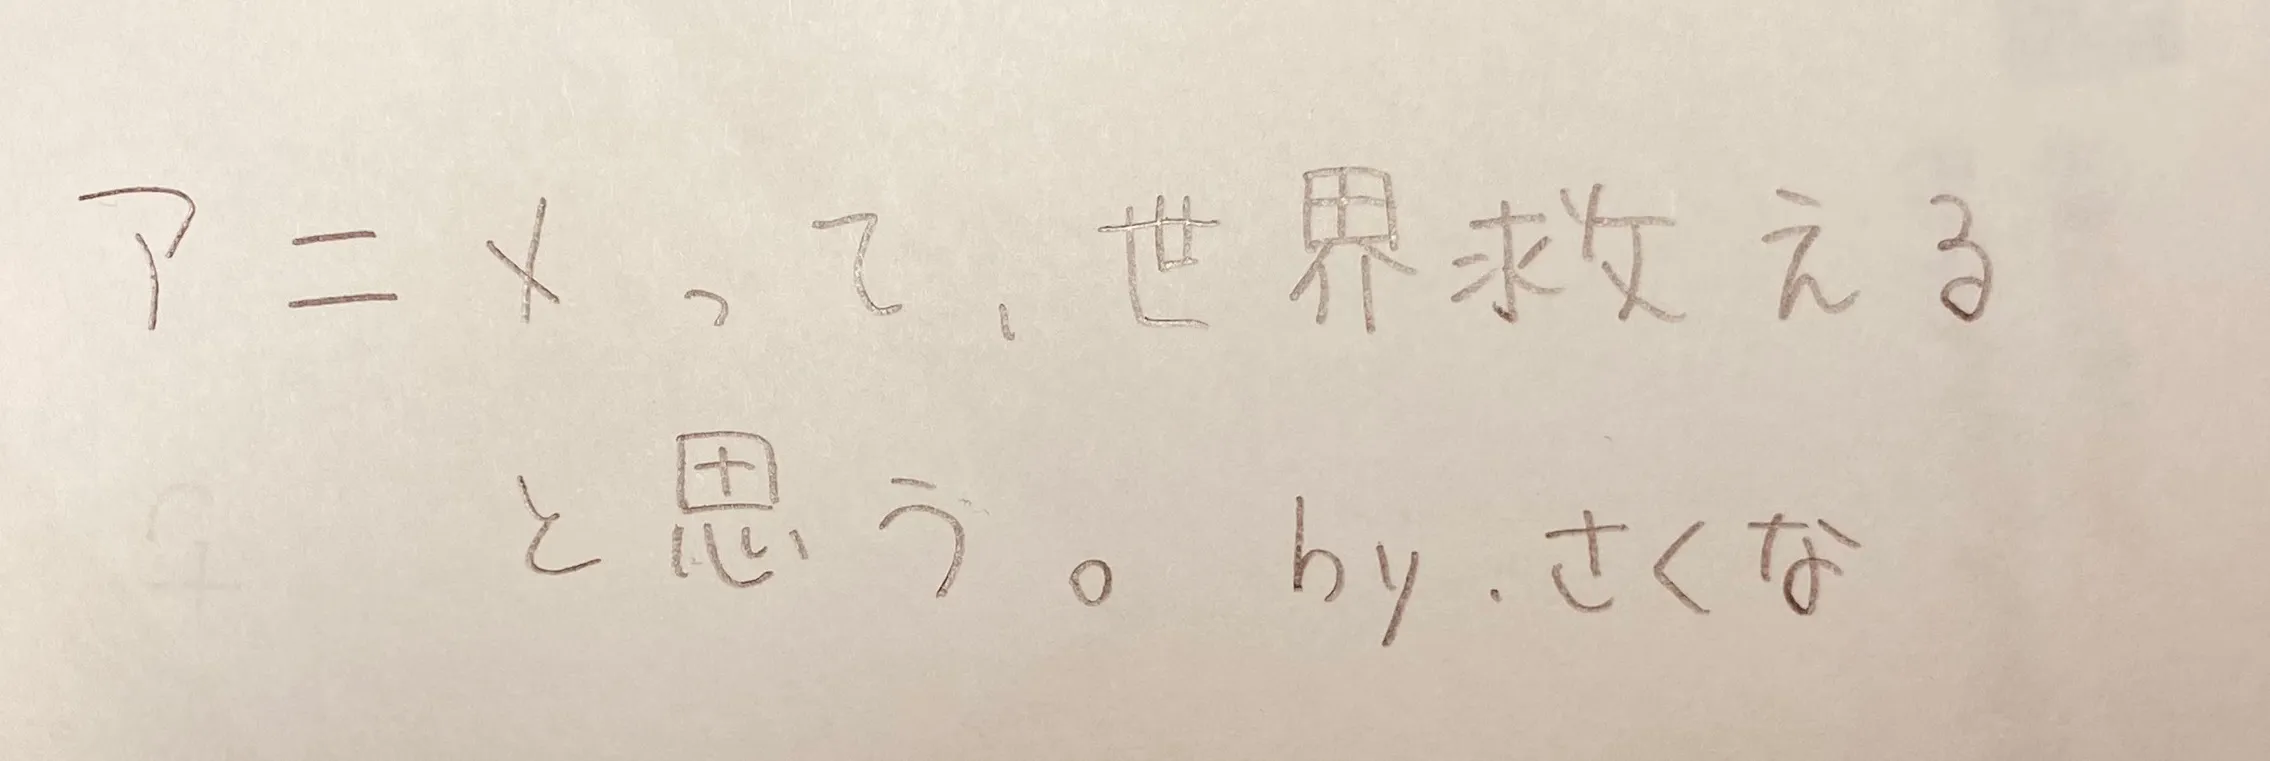 アニメって、世界救える
と思う。by.さくな